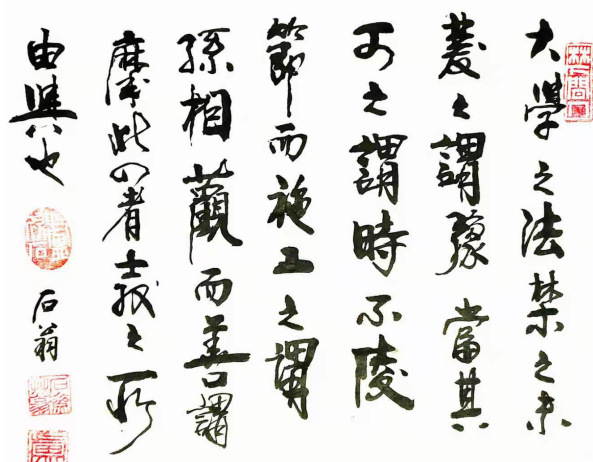 大學之法禁之未
發之謂豫當其
可之謂時不陵
節而施工之謂
孫相觀而善謂
摩此四者教之所
由興也
石翁